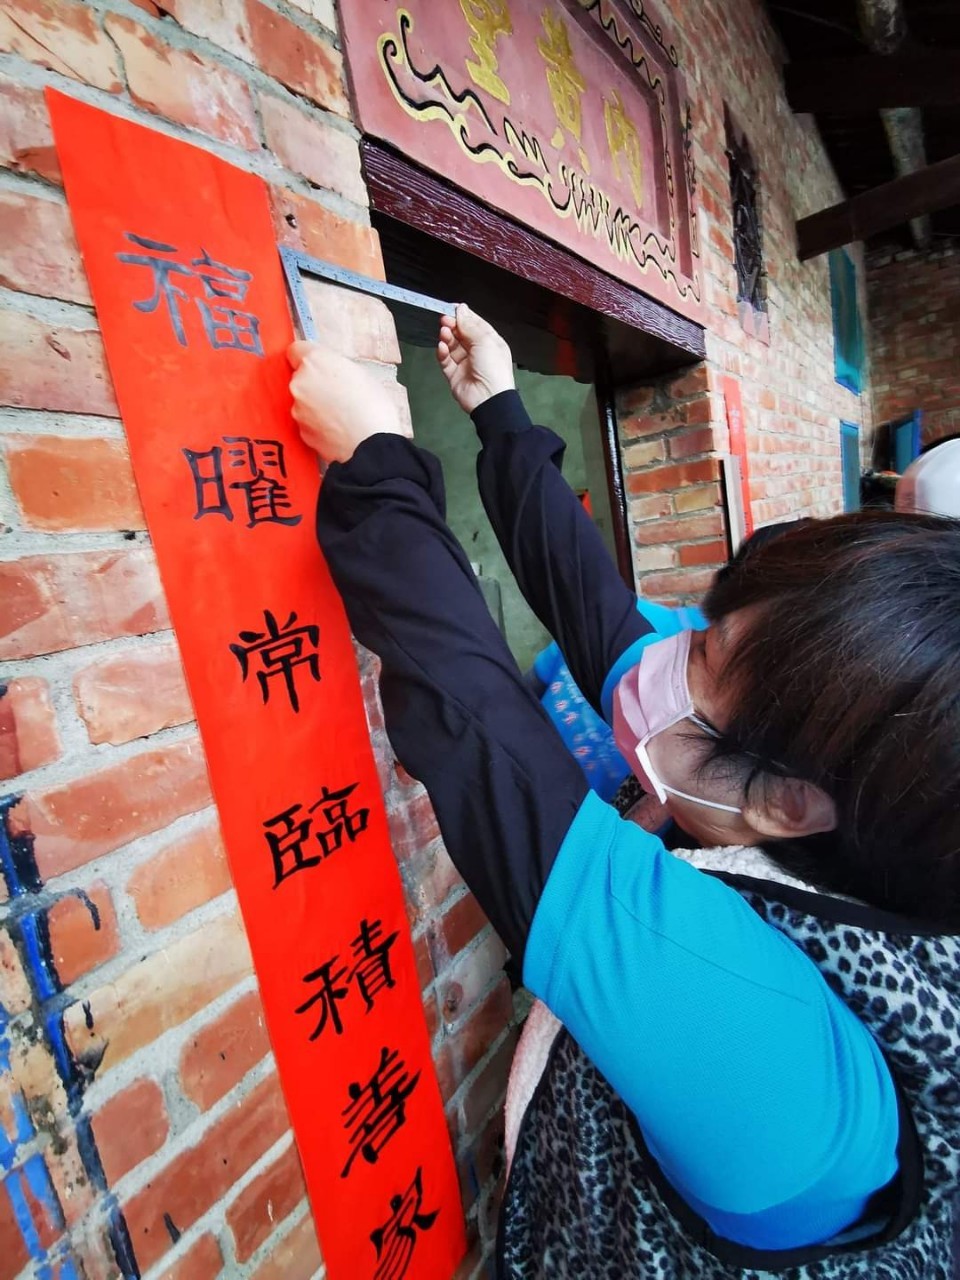 內黃
福曜常臨積善家